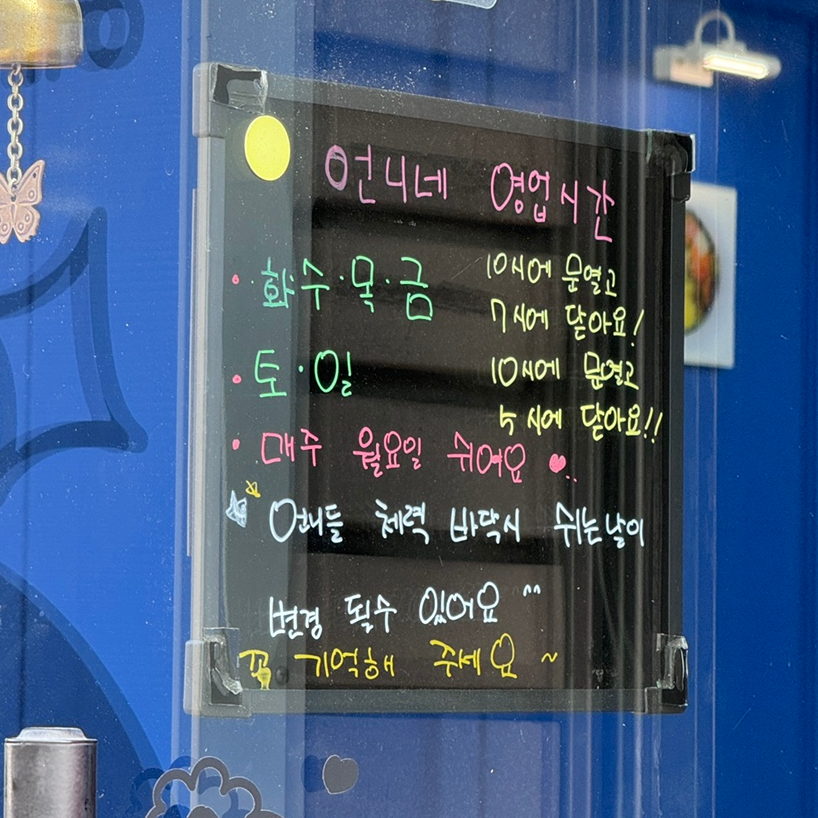 언니네 영업시간
· 화·수·목·금 10시에 문열고
7시에 닫아요!
· 토·일 10시에 문열고
5시에 닫아요!!
· 매주 월요일 쉬어요 ♥..
언니들 체력 바닥시 쉬는날이
변경 될수 있어요 ^^
꼭 기억해 주세요~